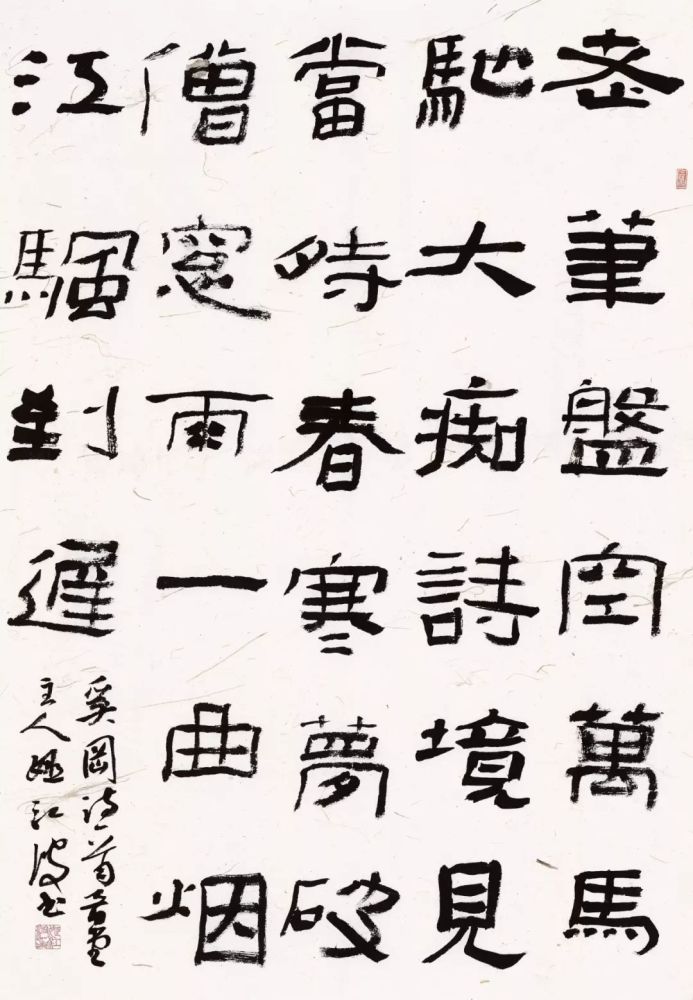 老筆盤空萬馬
馳大痴詩境見
當時春寒夢破
僧窓雨一曲烟
江颿到遲
奚岡詩一首
主人 江波書